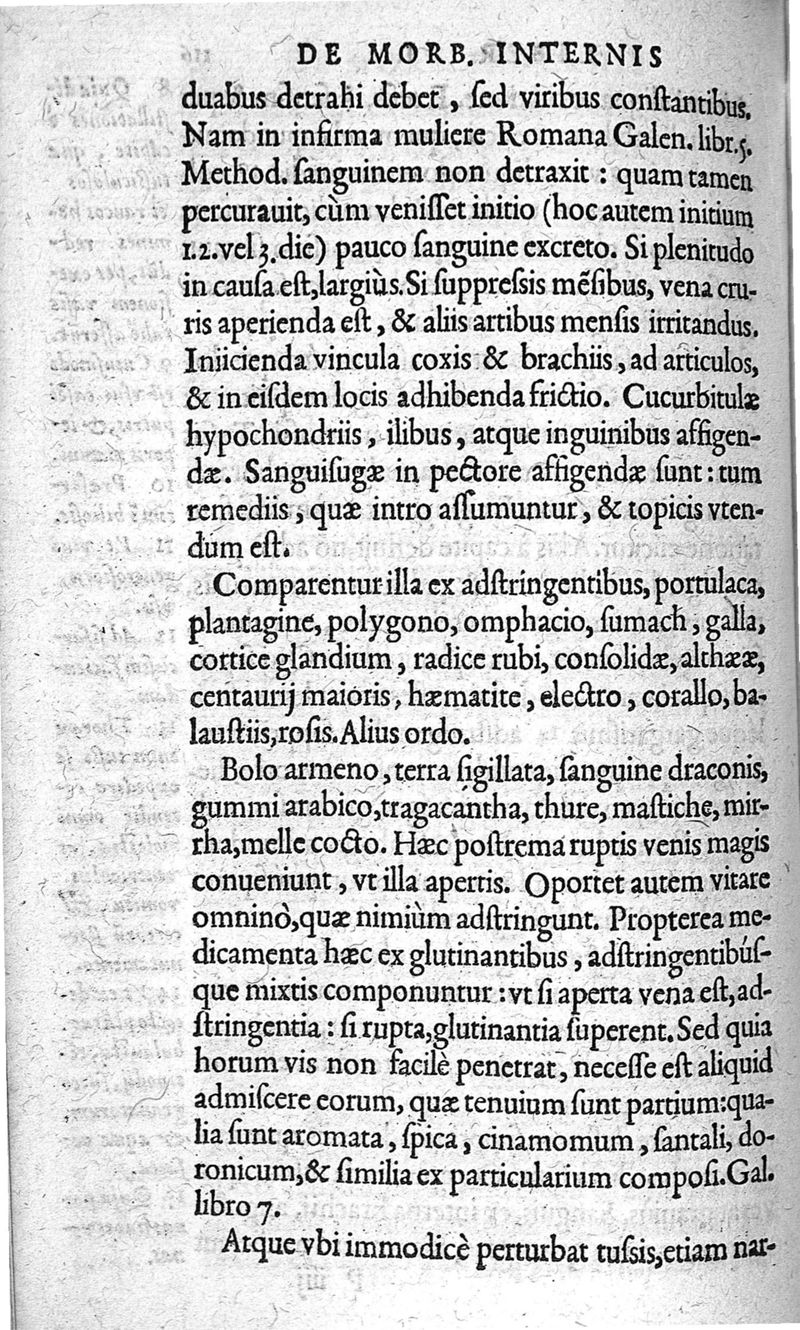 DE MORB. INTERNIS
duabus detrahi debet, sed viribus constantibus.
Nam in infirma muliere Romana Galen. libr. 5.
Method. sanguinem non detraxit : quam tamen
percurauit, cùm venisset initio (hoc autem initium
1. 2. vel 3. die) pauco sanguine excreto. Si plenitudo
in causa est, largiùs. Si suppressis mẽsibus, vena cru-
ris aperienda est, & aliis artibus mensis irritandus.
Iniicienda vincula coxis & brachiis, ad articulos,
& in eisdem locis adhibenda frictio. Cucurbitulæ
hypochondriis, ilibus, atque inguinibus affigen-
dæ. Sanguisugæ in pectore affigendæ sunt : tum
remediis, quæ intro assumuntur, & topicis vten-
dum est.
Comparentur illa ex adstringentibus, portulaca,
plantagine, polygono, omphacio, sumach, galla,
cortice glandium, radice rubi, consolidæ, althææ,
centaurij maioris, hæmatite, electro, corallo, ba-
laustiis, rosis. Alius ordo.
Bolo armeno, terra sigillata, sanguine draconis,
gummi arabico, tragacantha, thure, mastiche, mir-
rha, melle cocto. Hæc postrema ruptis venis magis
conueniunt, vt illa apertis. Oportet autem vitare
omninò, quæ nimiùm adstringunt. Propterea me-
dicamenta hæc ex glutinantibus, adstringentibús-
que mixtis componuntur : vt si aperta vena est, ad-
stringentia : si rupta, glutinantia superent. Sed quia
horum vis non facilè penetrat, necesse est aliquid
admiscere eorum, quæ tenuium sunt partium: qua-
lia sunt aromata, spica, cinamomum, santali, do-
ronicum, & similia ex particularium composi. Gal.
libro 7.
Atque vbi immodicè perturbat tussis, etiam nar-